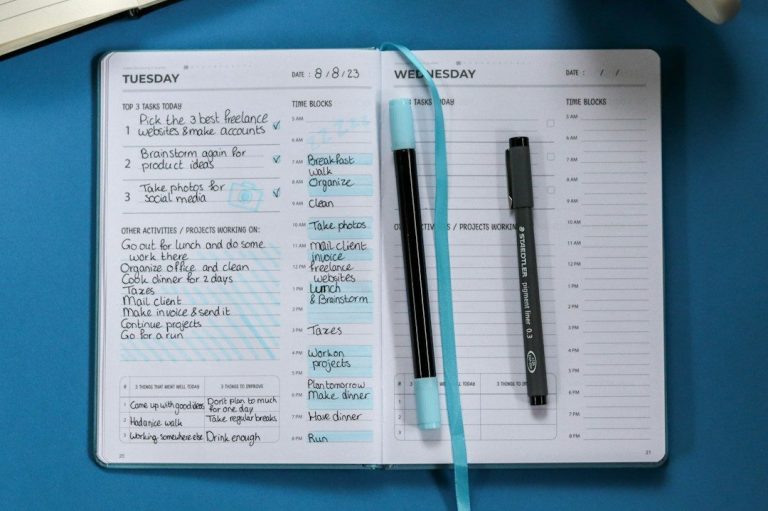 TUESDAY
DATE : 8/8/23
TOP 3 TASKS TODAY
1 Pick the 3 best freelance
websites & make accounts
2 Brainstorm again for
product ideas
3 Take photos for
social media
OTHER ACTIVITIES / PROJECTS WORKING ON:
Go out for lunch and do some
work there
Organize office and clean
Cook dinner for 2 days
Taxes
Mail client
Make invoice & send it
Continue projects
Go for a run
# 3 THINGS THAT WENT WELL TODAY 3 THINGS TO IMPROVE
1 Came up with good ideas Don't plan to much
for one day
2 Had a nice walk Take regular breaks
3 Working somewhere else Drink enough
20
TIME BLOCKS
5 AM zzzzz
6 AM
7 AM Breakfast
walk
8 AM Organize
9 AM Clean
10 AM Take photos
11 AM Mail client
invoice
12 PM freelance
websites
1 PM Lunch
2 PM & Brainstorm
3 PM Taxes
4 PM Work on
5 PM projects
Plan tomorrow
6 PM Make dinner
7 PM Have dinner
8 PM Run
WEDNESDAY
DATE : / /
3 TASKS TODAY
OTHER ACTIVITIES / PROJECTS WORKING
# 3 WELL TODAY 3 THINGS TO IMPROVE
1
2
3
TIME BLOCKS
5 AM
6 AM
7 AM
8 AM
9 AM
10 AM
11 AM
12 PM
1 PM
2 PM
3 PM
4 PM
5 PM
6 PM
7 PM
8 PM
21
STAEDTLER
pigment liner 0.3